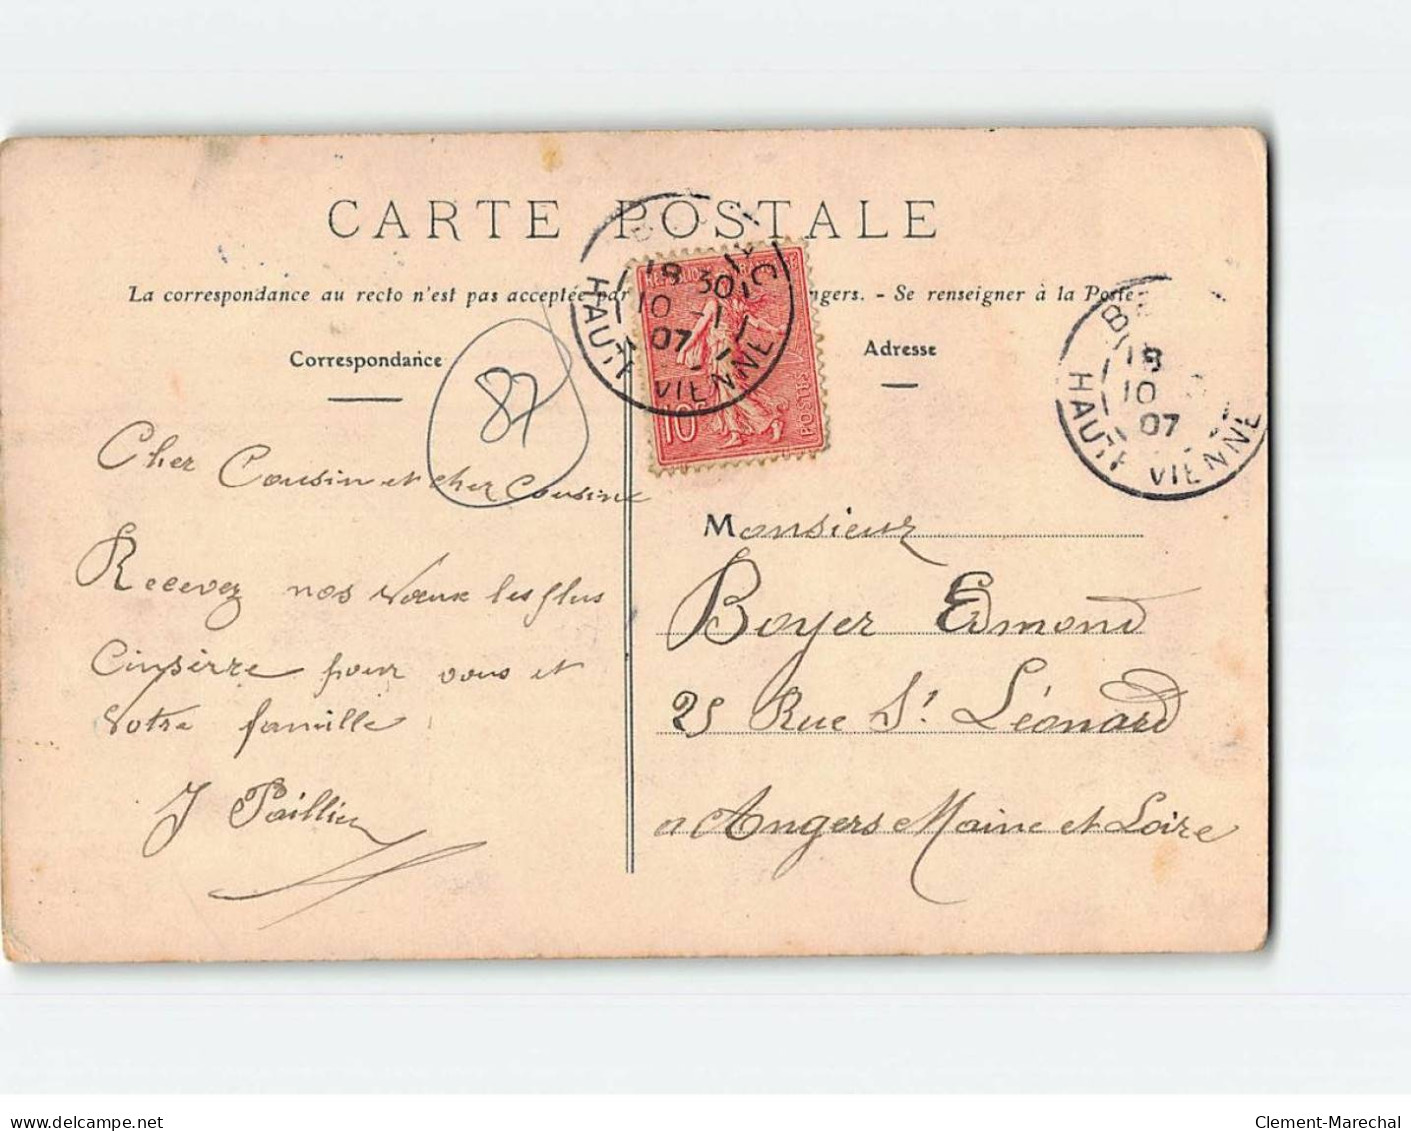 CARTE POSTALE
La correspondance au recto n'est pas acceptée par ngers. - Se renseigner à la Poste
Correspondance
Adresse
87
18 30
10 -1
07
HAUTE VIENNE
10
POSTES
18
10
07
HAUTE VIENNE
Cher Cousin et cher Cousine
Recevez nos vœux les plus
Cinserre pour vous et
Votre famille
J Paillier
Monsieur
Boyer Edmond
25 Rue St Léonard
a Angers Maine et Loire
www.delcampe.net
Clement-Marechal